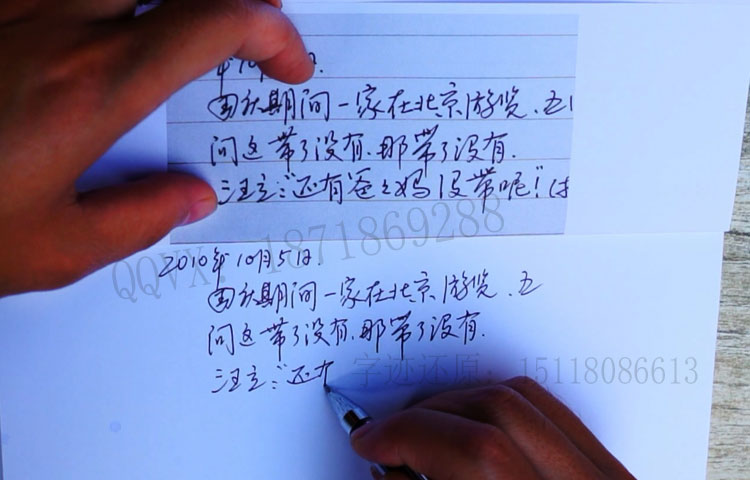 年10月5日.
国庆期间一家在北京游览.五
问这带了没有.那带了没有.
汪立:"还有爸爸妈妈没带呢!"
QQVX: 1871869288
2010年10月5日.
国庆期间一家在北京游览.五
问这带了没有.那带了没有.
汪立:"还有
字迹还原: 15118086613